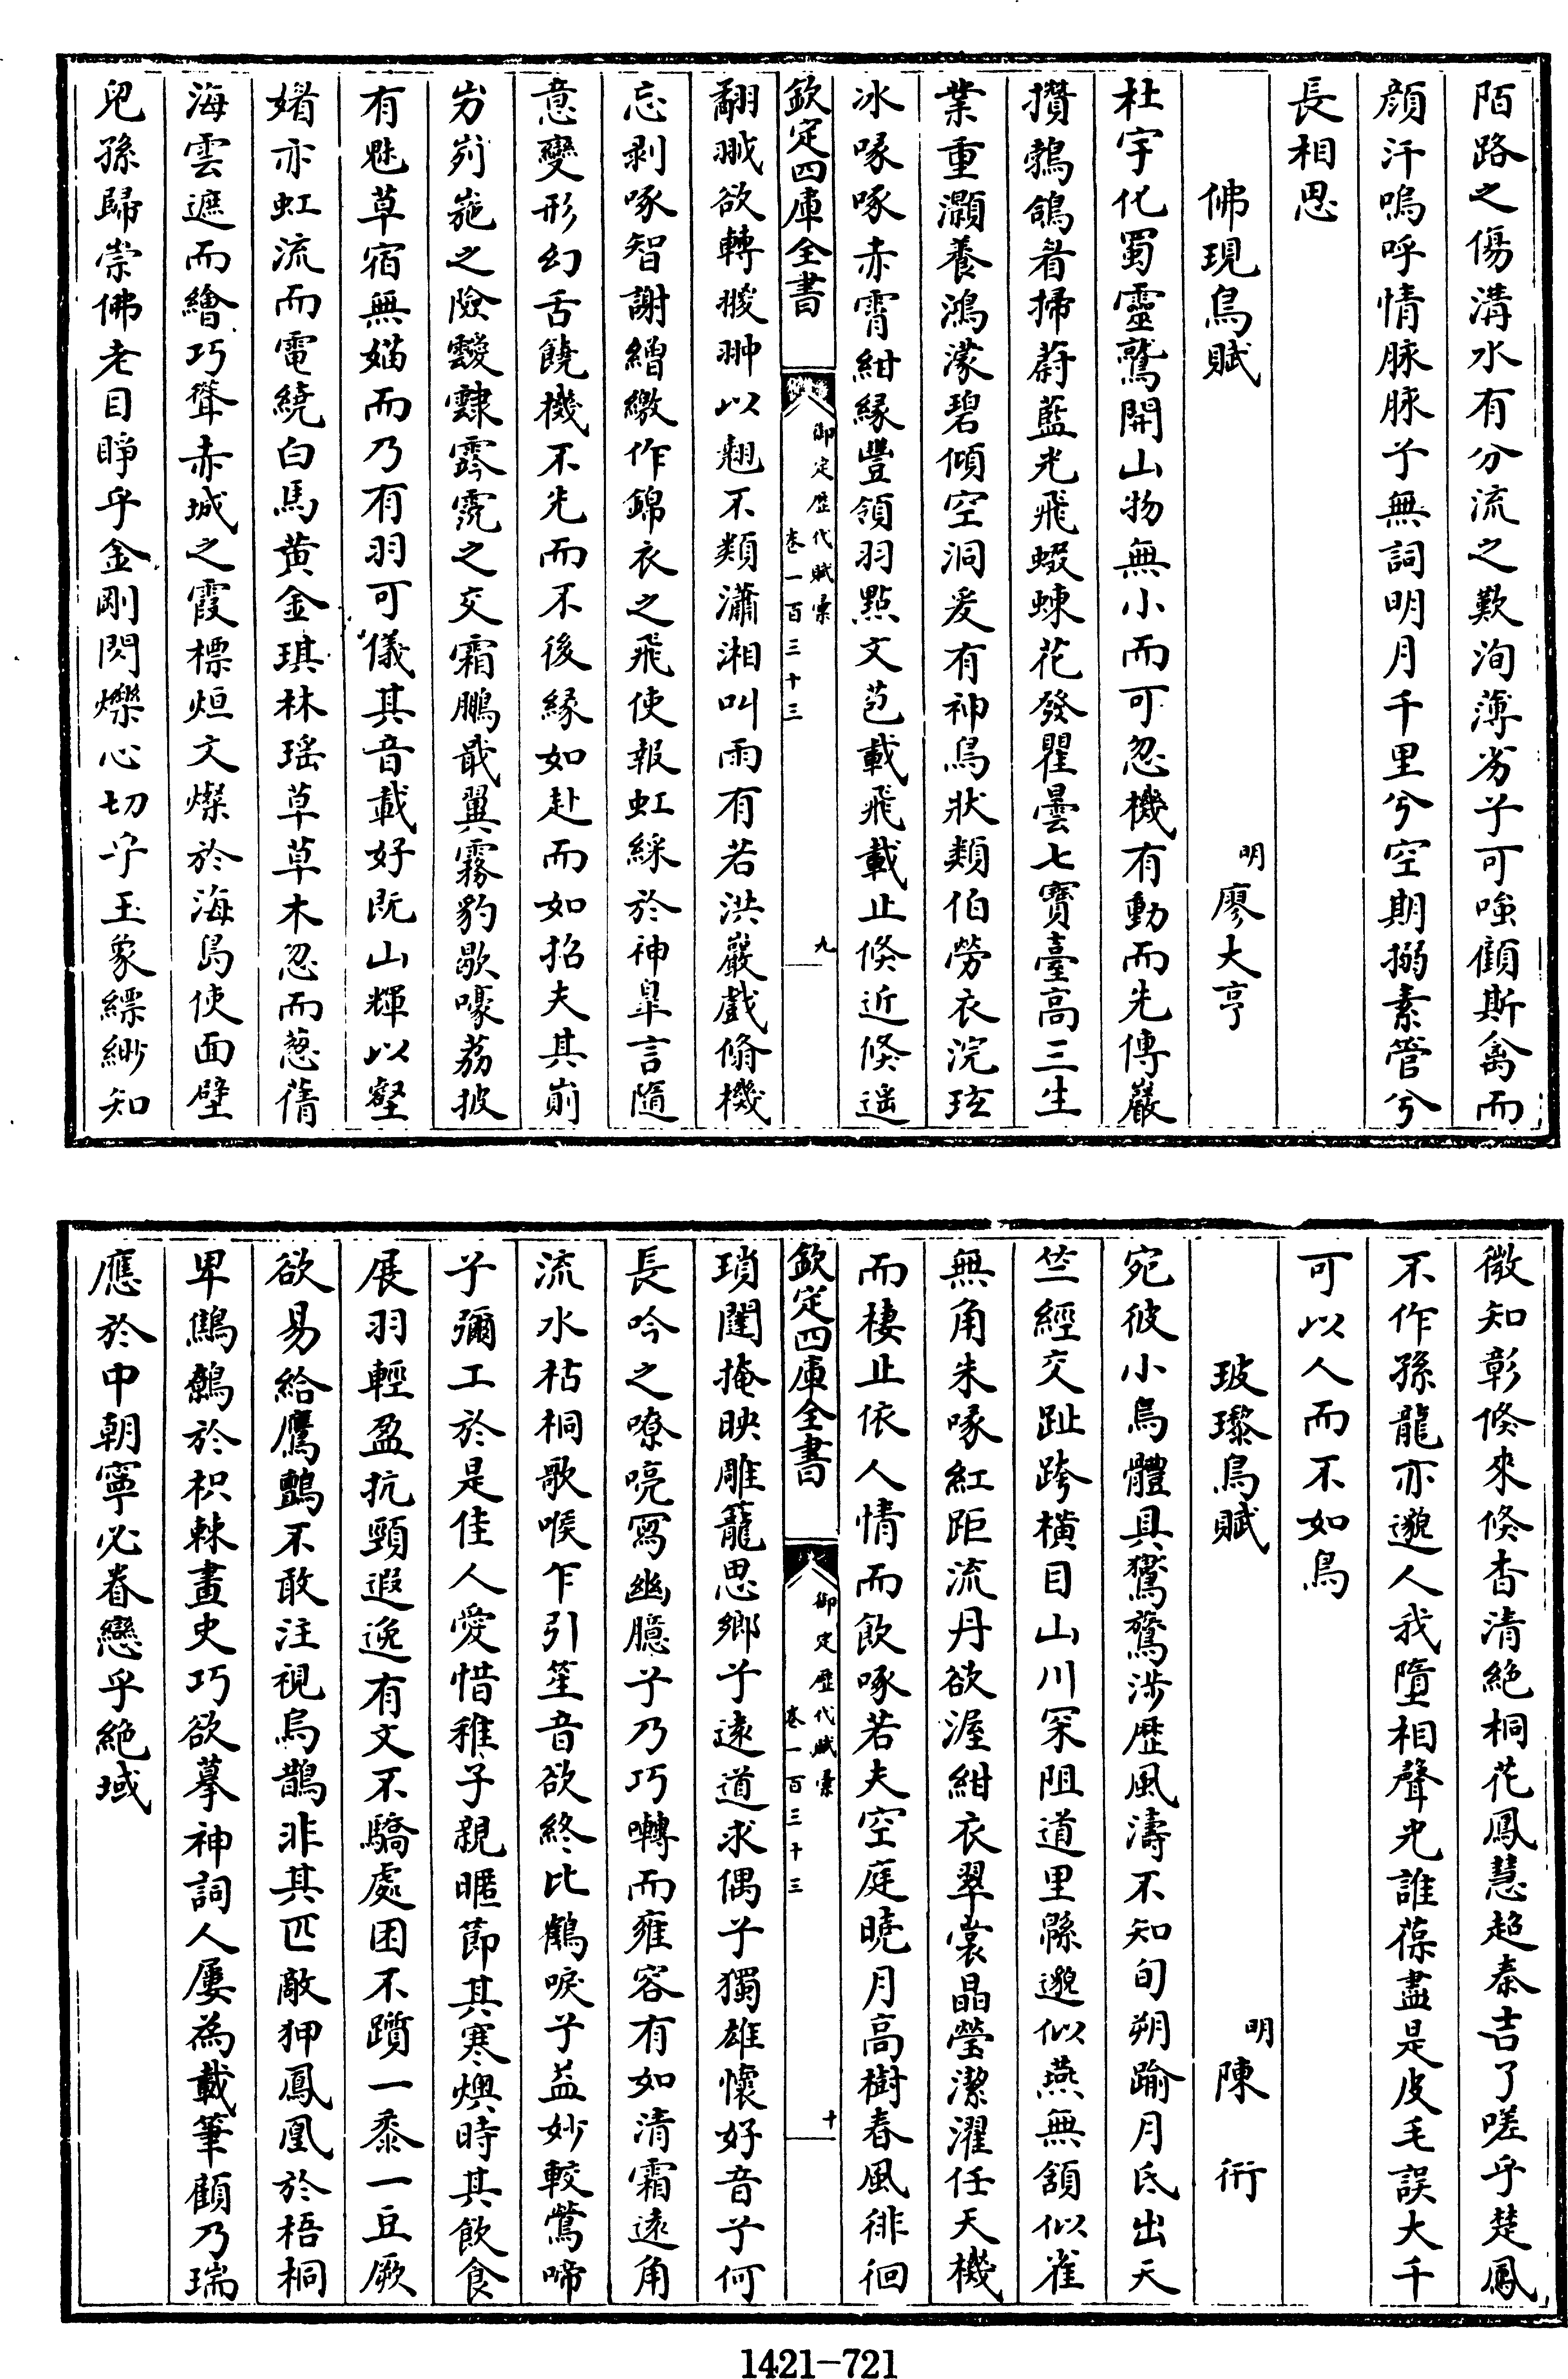 陌路之傷溝水有分流之歎洵薄劣兮可嗤顧斯禽而
顔汗嗚呼情脉脉兮無詞明月千里兮空期搦素管兮
長相思
佛現鳥賦
明廖大亨
杜宇化蜀靈鷲開山物無小而可忽機有動而先傳巖
攢鶉鴿㸔掃蔚藍光飛蝃蝀花發瞿曇七寶臺高三生
業重灝養鴻濛碧傾空洞爰有神鳥狀類伯勞衣浣玹
冰喙啄赤霄紺緣豐領羽點文苞載飛載止倐近倐遥
欽定四庫全書
御定歴代賦彙
卷一百三十三
九
翻翐欲轉翪翀以翹不類瀟湘叫雨有若洪巖戲翛機
忘剥啄智謝繒繳作錦衣之飛使報虹綵於神臯言隨
意變形幻舌饒機不先而不後緣如赴而如招夫其崱
屴峛崺之險靉靆霠霿之交霜鵬戢翼霧豹歇嘷荔披
有魅草宿無媌而乃有羽可儀其音載好既山輝以壑
媚亦虹流而電繞白馬黄金琪林瑶草草木忽而蔥蒨
海雲遮而繪巧聳赤城之霞標烜文燦於海島使面壁
兒孫歸崇佛老目睜乎金剛閃爍心切乎玉象縹緲知
微知彰倐來倐杳清絶桐花鳳慧超秦吉了嗟乎楚鳳
不作孫龍亦邈人我墮相聲光誰葆盡是皮毛誤大千
可以人而不如鳥
玻瓈鳥賦
明陳衎
宛彼小鳥體具鴐鵞涉歴風濤不知旬朔踰月氐出天
竺經交趾跨橫目山川罙阻道里緜邈似燕無頷似雀
無角朱喙紅距流丹欲渥紺衣翠裳晶瑩潔濯任天機
而棲止依人情而飲啄若夫空庭曉月高樹春風徘徊
欽定四庫全書
御定歴代賦彙
卷一百三十三
十
瑣闥掩映雕籠思鄉兮遠道求偶兮獨雄懷好音兮何
長吟之嘹喨寫幽臆兮乃巧囀而雍容有如清霜遠角
流水枯桐歌喉乍引笙音欲終比鶴唳兮益妙較鶯啼
兮彌工於是佳人愛惜稚子親暱節其寒燠時其飲食
展羽輕盈抗頸遐逸有文不驕處困不躓一黍一豆厥
欲易給鷹鸇不敢注視烏鵲非其匹敵狎鳳凰於梧桐
卑鷦鷯於枳棘畫史巧欲摹神詞人屢為載筆顧乃瑞
應於中朝寧必眷戀乎絶域
1421—721